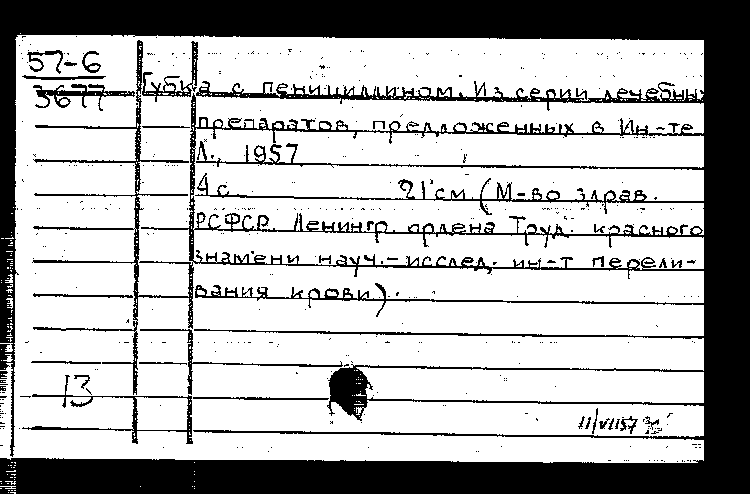 57-6
3677
Губка с пенициллином. Из серии лечебных
препаратов, предложенных в Ин-те
Л., 1957
4 с. 21 см. (М-во здрав.
РСФСР. Ленингр. ордена Труд. красного
знамени науч.-исслед. ин-т перели-
вания крови).
13
11/VII57